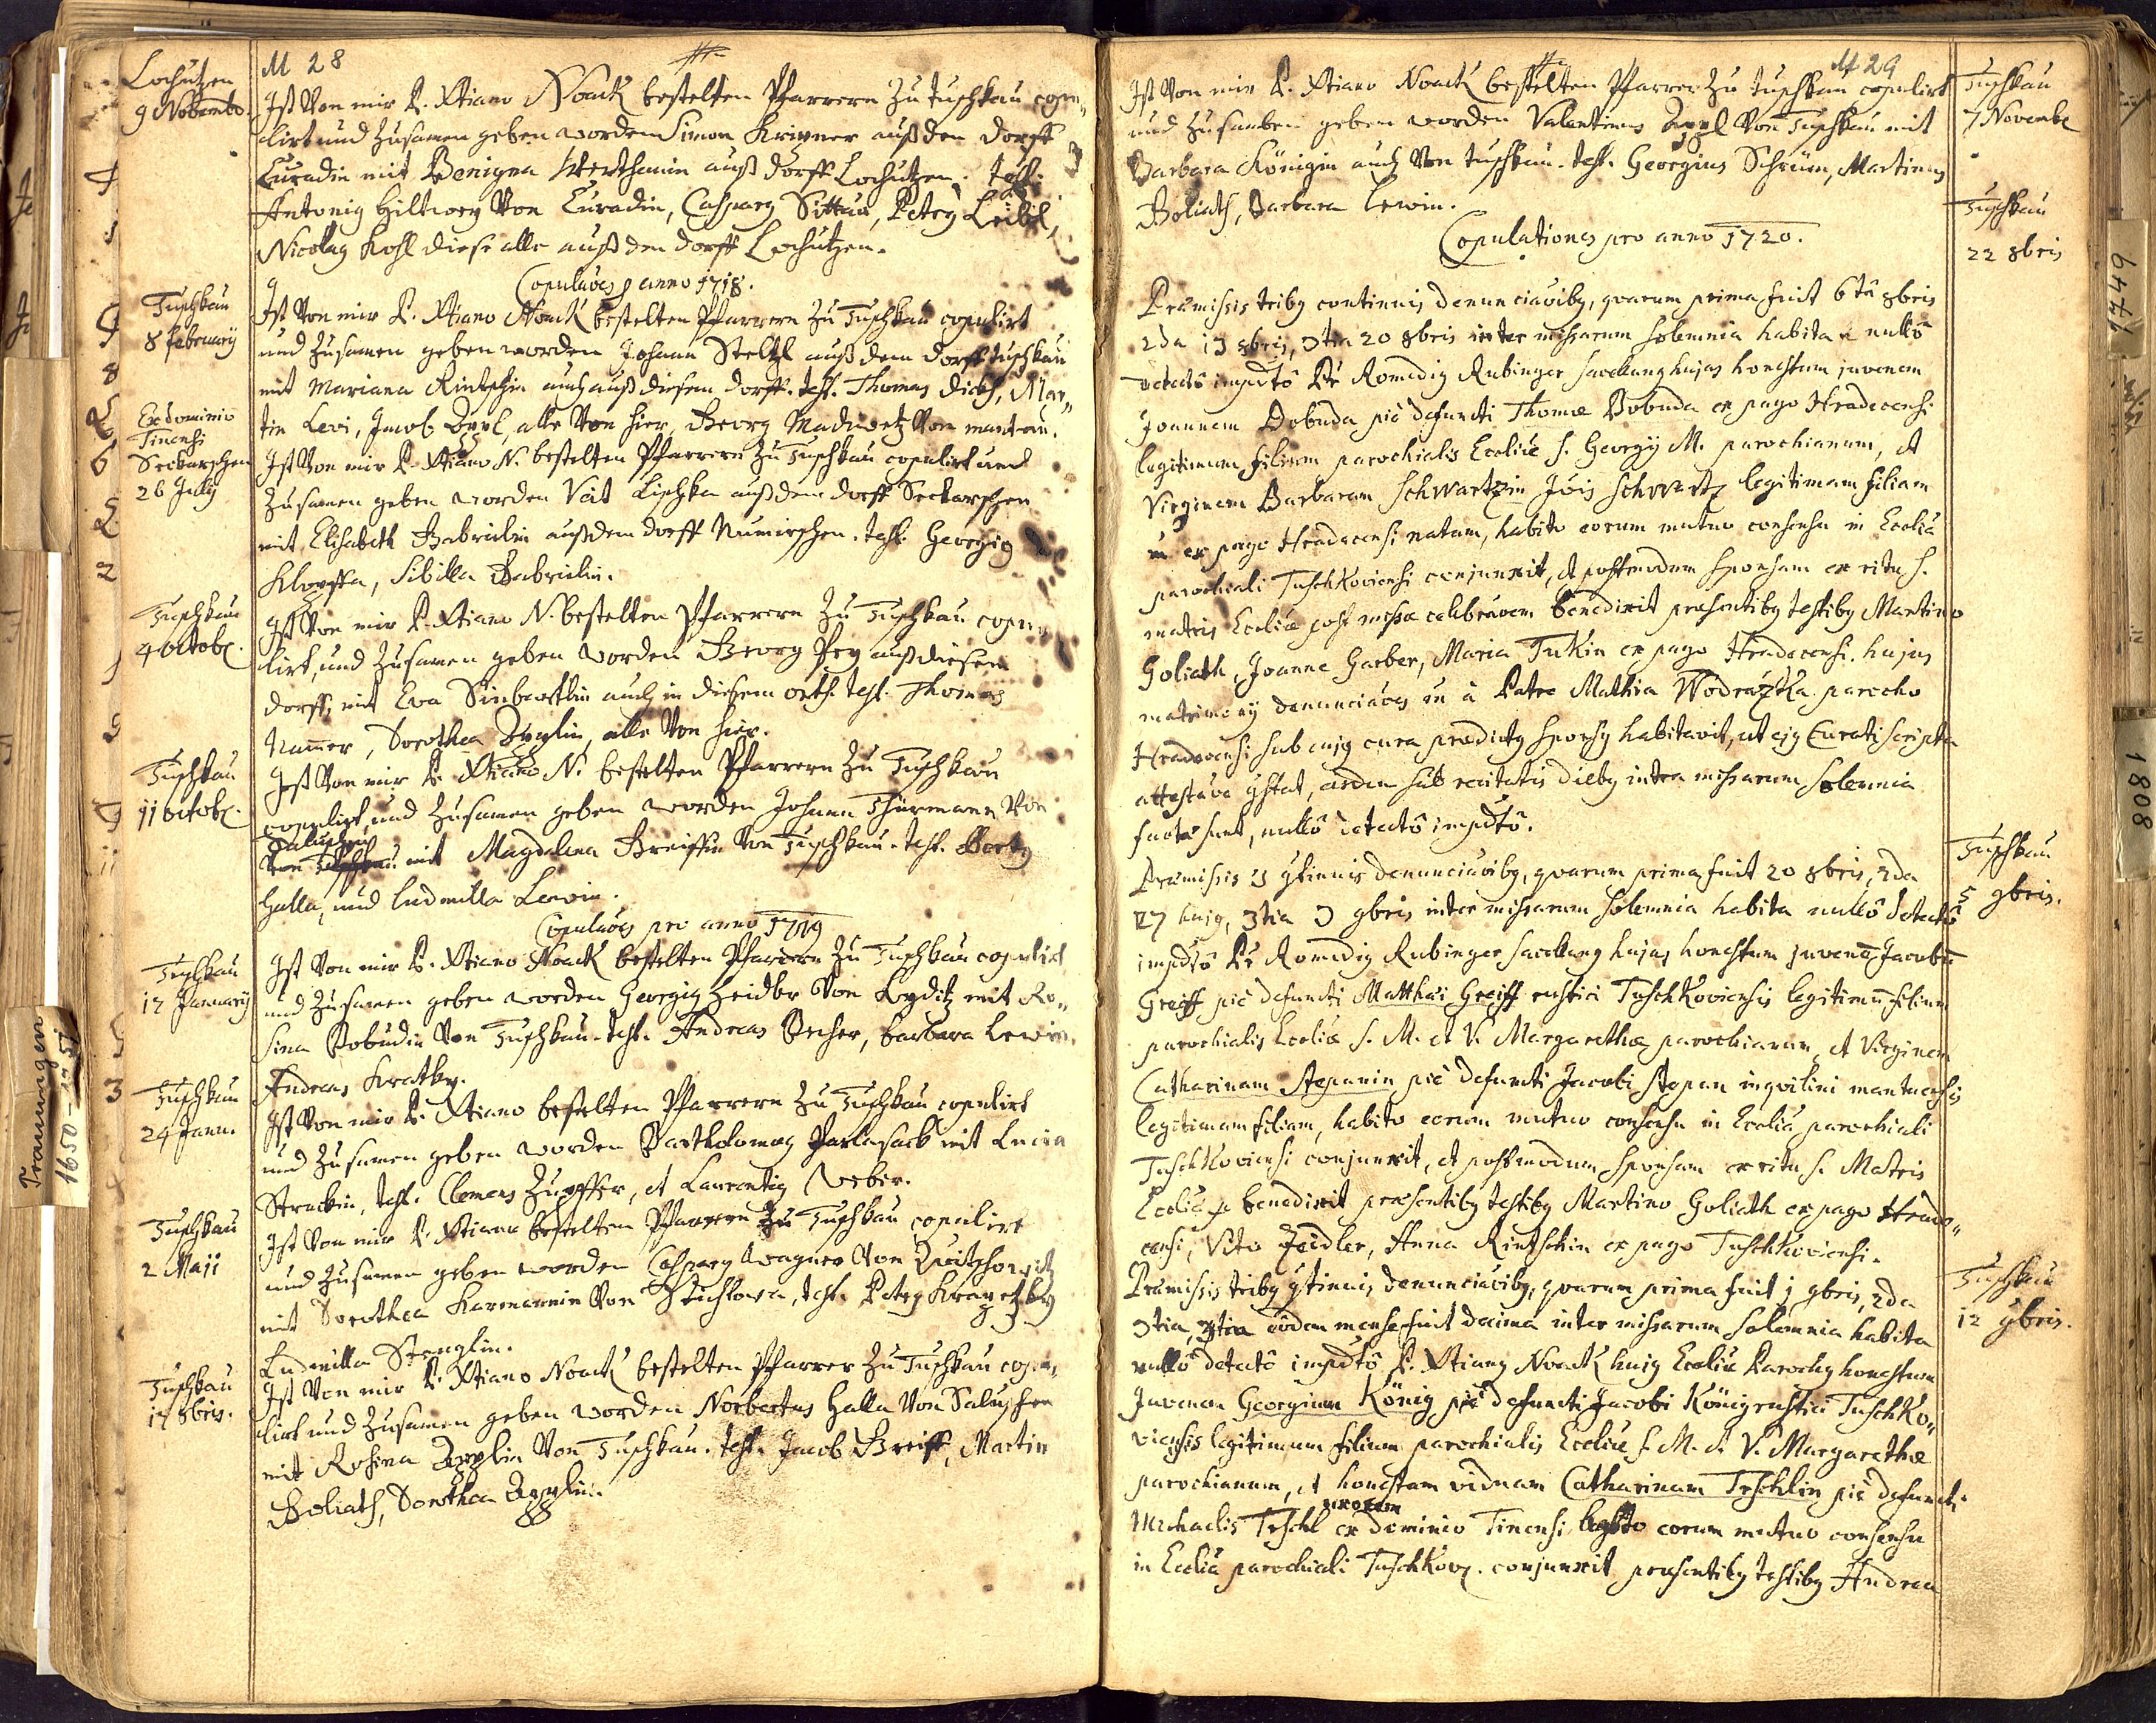 M 28
Lochutzen
9 Novemb.
Ist Von mir P. Xtiano Noack bestelten Pfarrern Zu Tuschkau copu„
lirt und Zusamen geben worden Simon Krizner auß den dorff
Curadin mit Benigna auß dorff Lochutzen. test.
Antonig Hiltwey Von Curadin, Casparg Sittau, Petrg Leibl,
Nicolag Kohl diese alle auß den dorff Lochutzen.
Copulaões p anno 1718.
Tuschkau
8 february
Ist Von mir P. Xtiano Noack bestelten Pfarrern Zu Tuschkau copulirt
und Zusamen geben worden Johann Steltzl auß dem dorff Tuschkau
mit Mariana Rintschin auch auß diesem dorff. test. Thomas Dietl, Mar„
tin Levi, Jacob Appl, alle Von hier, Georg Von mantau.
Ex dominio
Tinensi
Seckerschen
26 July
Ist Von mir P. Xtiano N. bestelten Pfarrern Zu Tuschkau copulirt und
Zusamen geben worden Veit Lischka auß dem dorff Seckerschen
mit Elisabeth Gabrielin auß dem dorff Numirschen. test. Georgig
Klopffa, Sibilla Gabrielin.
Tuschkau
4 octob.
Ist Von mir P. Xtiano N. bestelten Pfarrern Zu Tuschkau copu„
lirt, und Zusamen geben worden Georg auß diesem
dorff, mit Eva auch in diesem orth. test. Thomas
Namer, Dorothea Applin, alle Von hier.
Tuschkau
11 octob.
Jst Von mir P. Xtiano N. bestelten Pfarrern Zu Tuschkau
copulirt und Zusamen geben worden Johann Thürmann Von
Saluschen
Von Tuschkau mit Magdalena Greiffin Von Tuschkau. test.
Halla, und Ludmilla Lewin.
Copulaões pro anno 1719
Tuschkau
17 January
Ist Von mir P. Xtiano Noack bestelten Pfarrern Zu Tuschkau copulirt
und Zusamen geben worden Georgig Zeidler Von Lyditz mit Ro„
sina Dobudin Von Tuschkau. test. Andreas Becher, barbara Lewin,
Andreas Kratky.
Tuschkau
24 Janu.
Ist Von mir P. Xtiano bestelten Pfarrern Zu Tuschkau copulirt
und Zusamen geben worden Bartholomag Parlasack mit Lucia
Strackin, test. Clemens Zupffer, et Laurentig Weber.
Tuschkau
2 Maji
Ist Von mir P. Xtiano bestelten Pfarrern Zu Tuschkau copulirt
und Zusamen geben worden Casparg Wagner Von
mit Dorothea Karmannin Von test. Petrg
Ludmilla Stenglin.
Tuschkau
17 8bris.
Ist Von mir P. Xtiano Noack bestelten Pfarrer Zu Tuschkau copu„
lirt und Zusamen geben worden Norbertus Halla Von Saluschen
mit Rosina Applin Von Tuschkau. test. Jacob Greiff, Martin
Goliath, Dorothea Applin.
M 29
Ist Von mir P. Xtiano Noack bestelten Pfarrer Zu Tuschkau copulirt
und Zusamben geben worden Valentinus Appl Von Tuschkau mit
Barbara Königin auch Von Tuschkau. test. Georgius Schreim, Martinus
Goliath, Barbara Lewin.
Tuschkau
7 Novembr
Copulationes pro anno 1720.
Tuschkau
22 8bris
Praemissis tribg continuis denunciaõibg, quarum prima fuit 6ta 8bris
2da 13 8bris, 3tia 20 8bris inter missarum solemnia habita e nullô
detectô impdtô Pr Romedig Rubinger sacellang hujas honestum juvenem
Joannem Dobuda piè defuncti Thomae Dobuda ex pago Hradecensi
legitimum filium parochialis Eccliae s. Georgij M. parochianum, et
Virginem Barbaram Schwartzin Jõis Schwartz legitimam filiam
ex pago Hradecensi natam, habito eorum mutuo consensu in Ecclia
parochiali Tuschkoviensi conjunxit, et postmodum sponsam ex ritu s.
matris Eccliae post missae celebraõem benedixit praesentibg testibg Martino
Goliath, Joanne Garber, Maria Turkin ex pago Hradecensi. hujus
matrimonij denunciaões à Patre Mathia Wodrazka parocho
Hradecensi sub cujg cura praedictg sponsg habitavit, ut ejg Curati scripta
attestaõe gstat, aedem sub recitatis diebg intra missarum solemnia
factae sunt, nullô detectô impdtô.
Tuschkau
5 9bris.
Praemissis 3 gtinuis denunciaõibg, quarum prima fuit 20 8bris, 2da
27 hujg, 3tia 3 9bris inter missarum solemnia habita nullô detectô
impdtô Pr Romedig Rubinger sacellang hujas honestum juvenē Jacobū
Greiff piè defuncti Matthaei Greiff rustici Tuschkoviensis legitimū filium
parochialis Eccliae s. M. et V. Margarethae parochianum, et Virginem
Catharinam Stepanin piè defuncti Jacobi Stepan inquilini mantuensis
legitimam filiam, habito eorum mutuo consensu in Ecclia parochiali
Tuschkoviensi conjunxit, et postmodum sponsam ex ritu s. Matris
Eccliae benedixit praesentibg testibg Martino Goliath ex pago Hrade„
censi, Vito Zeidler, Anna Rintschin ex pago Tuschkoviensi.
Tuschkau
12 9bris.
Praemissis tribg gtinuis denunciaõibg, quarum prima fuit 1 9bris, 2da
3tia eôdem mense fuit decima inter missarum solemnia habita
nullô detectô impdtô P. Xtiang Noack hujg Eccliae Parochg honestum
Juvenem Georgium König piè defuncti Jacobi König rustici Tuschko„
viensis legitimum filium parochialis Eccliae s. M. et V. Margarethae
parochianum, et honestam viduam Catharinam Teschlin piè defuncti
uxorem
Michaelis Teschl ex dominio Tinensi habito eorum mutuo consensu
in Ecclia parochiali Tuschkov. conjunxit praesentibg testibg Andrea
Trauungen
1650-1751
1749
1808